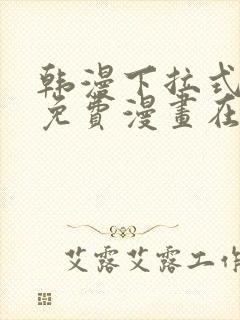 韩漫下拉式
免費漫畫在
艾露艾露工作